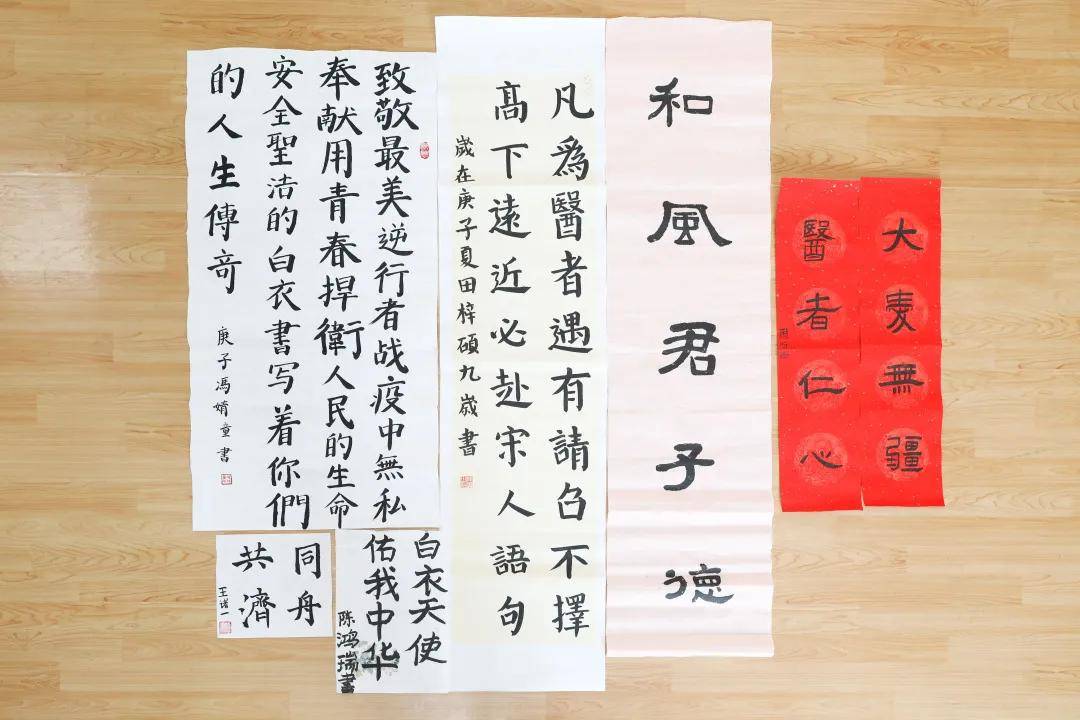 大爱無疆
醫者仁心
和風君子德
凡爲醫者遇有請召不擇
髙下遠近必赴宋人語句
歲在庚子夏田梓碩九歲書
致敬最美逆行者战疫中無私
奉献用青春捍衛人民的生命
安全聖洁的白衣書写着你們
的人生傳奇
庚子馮婧童書
白衣天使
佑我中华
陈鸿瑞書
同舟
共濟
王诺一